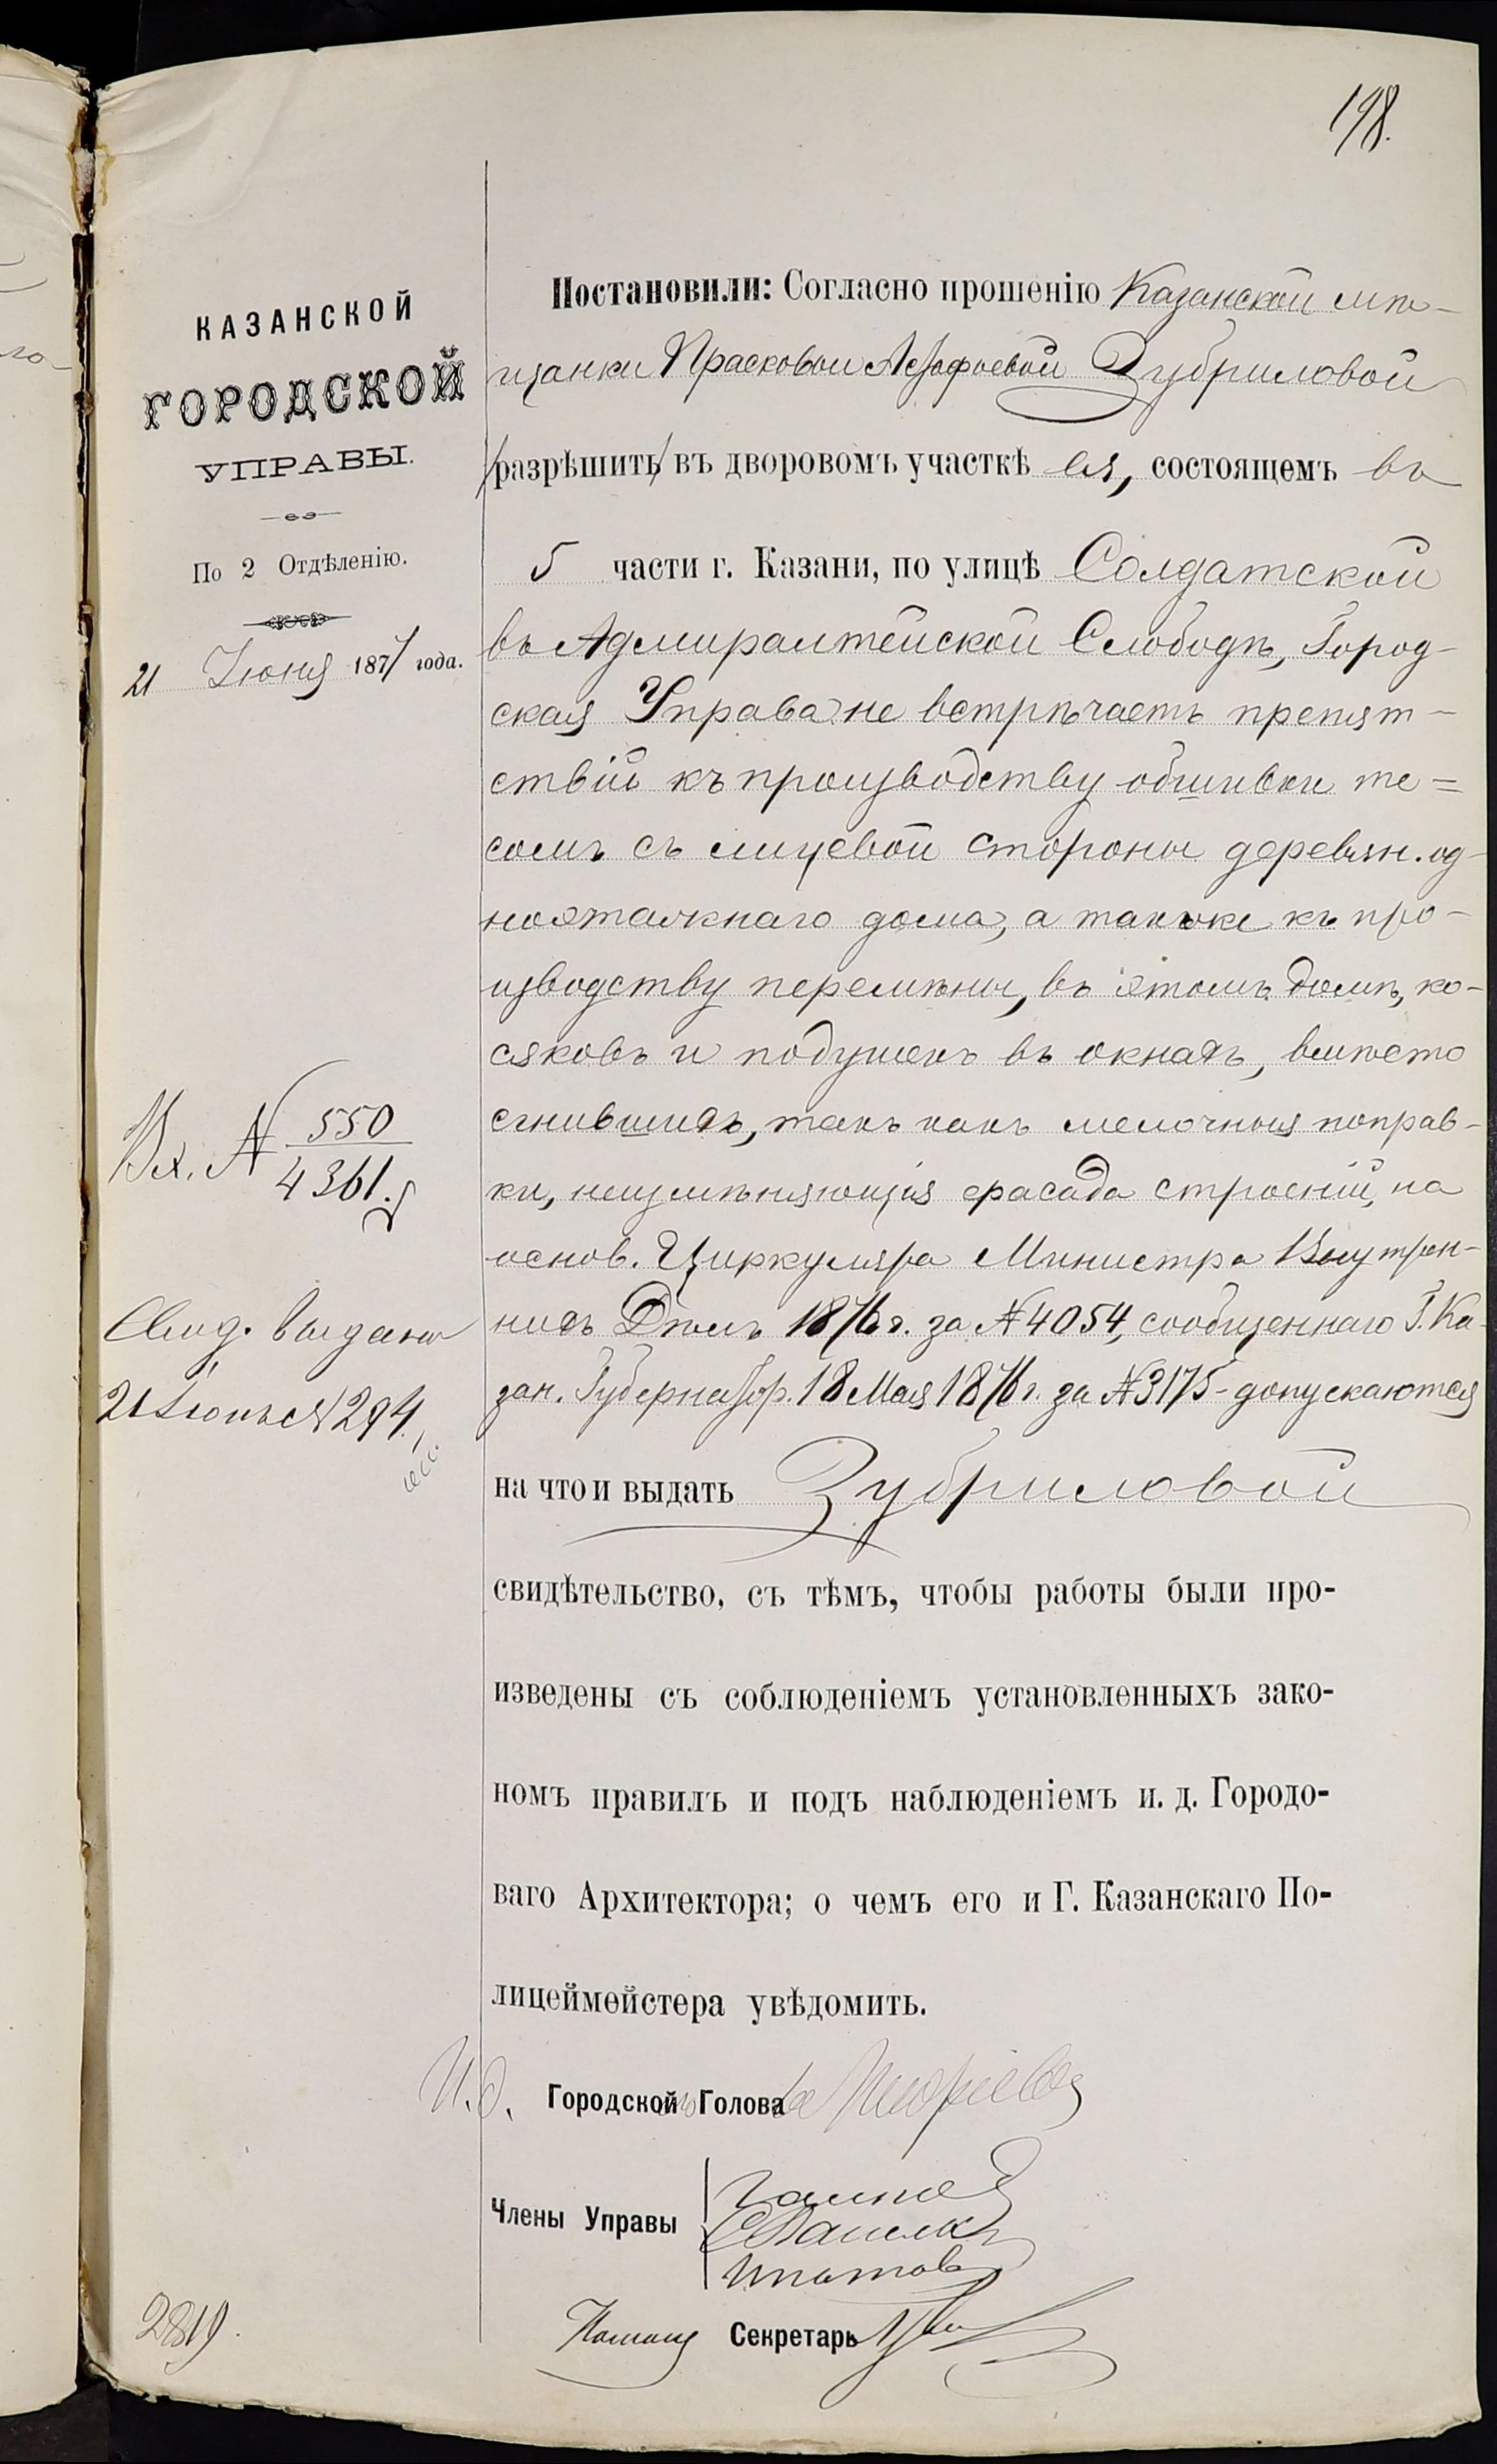 198.
КАЗАНСКОЙ
ГОРОДСКОЙ
УПРАВЫ.
По 2 Отдѣленію.
21 Іюня 1877 года.
Вх. № 550
4361.
Свид. выдано
21 Іюня № 294.
2819.
Постановили: Согласно прошенію Казанской мѣ-
щанки Прасковьи Зубриловой
разрѣшить въ дворовомъ участкѣ ея, состоящемъ въ
5 части г. Казани, по улицѣ Солдатской
въ Адмиралтейской Слободѣ, Город-
ская Управа не встрѣчаетъ препят-
ствій къ производству обшивки те=
сомъ съ лицевой стороны деревян. од-
ноэтажнаго дома, а также къ про-
изводству перемѣны, въ этомъ домѣ, ко-
сяковъ и подушекъ въ окнахъ, вмѣсто
сгнившихъ, такъ какъ мелочныя поправ-
ки, неизмѣняющія фасада строеній, на
основ. Циркуляра Министра Внутрен-
нихъ Дѣлъ 1876 г. за № 4054, сообщеннаго Г. Ка-
зан. Губернатор. 18 Мая 1876 г. за № 3175 - допускаются
на что и выдать Зубриловой
свидѣтельство, съ тѣмъ, чтобы работы были про-
изведены съ соблюденіемъ установленныхъ зако-
номъ правилъ и подъ наблюденіемъ и. д. Городо-
ваго Архитектора; о чемъ его и Г. Казанскаго По-
лицеймейстера увѣдомить.
И.д. Городской Голова
Члены Управы
Ипатовъ
Секретарь